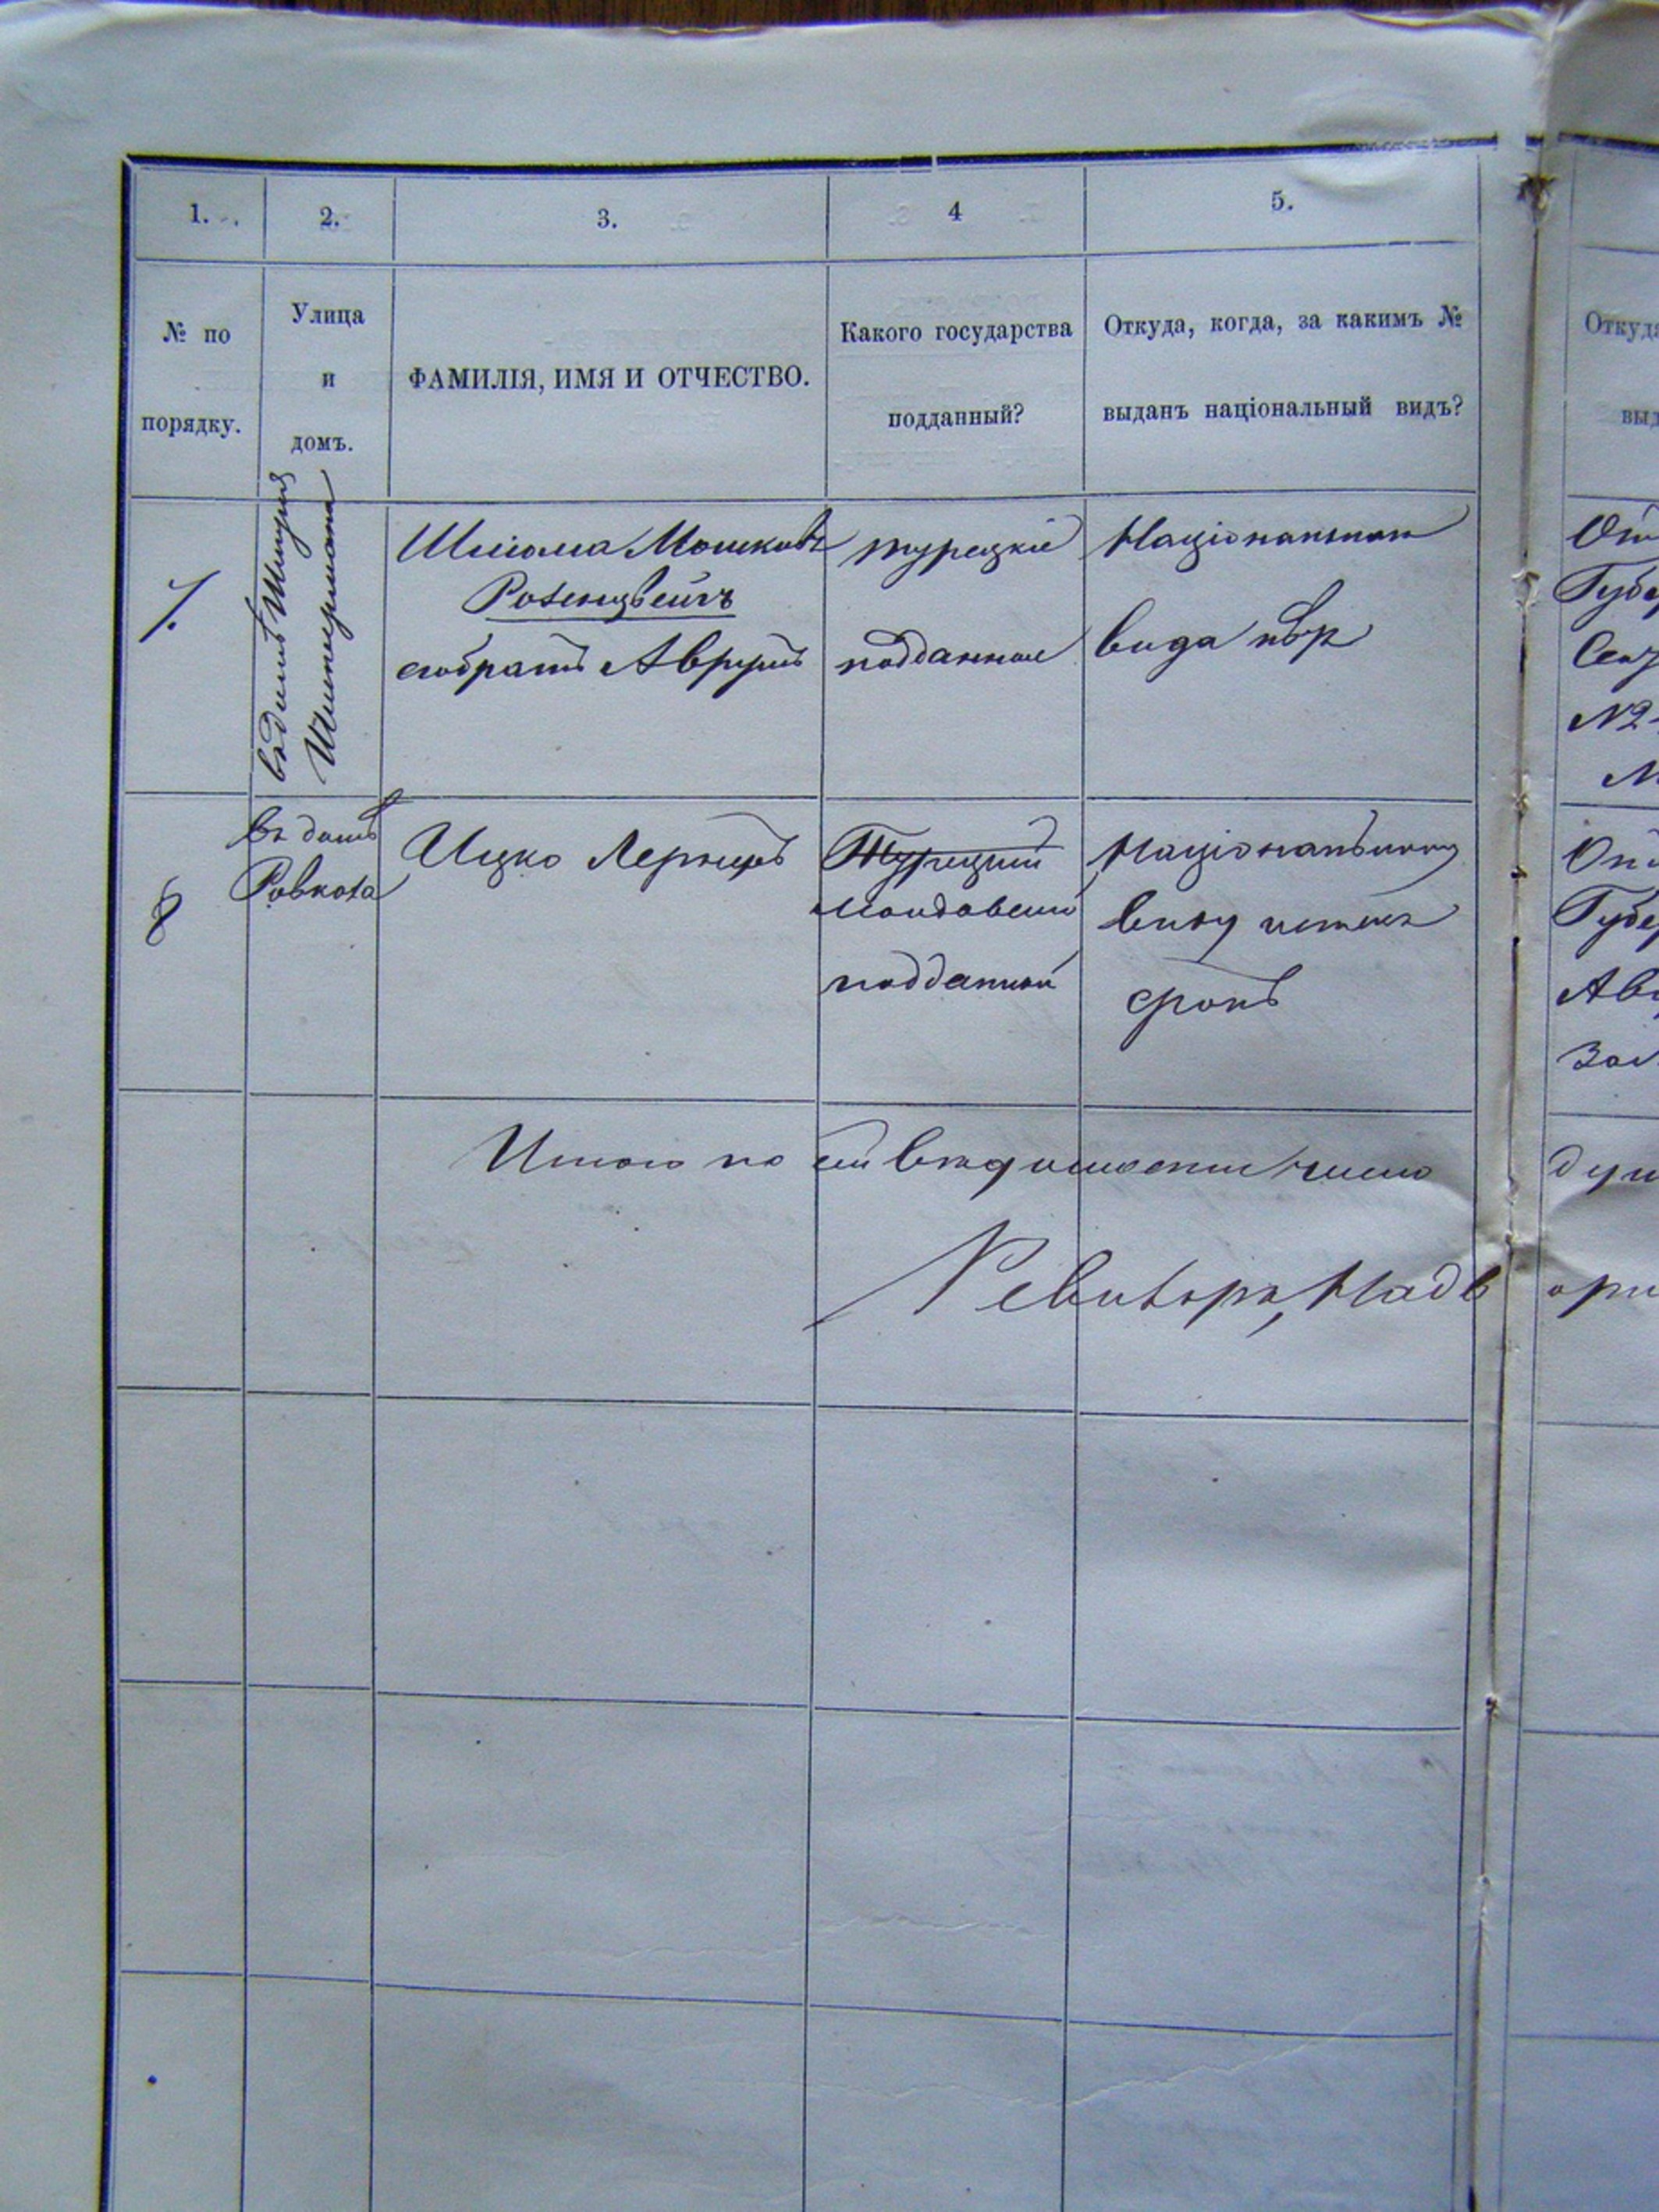 1.
2.
3.
4
5.
№ по
порядку.
Улица
и
домъ.
ФАМИЛІЯ, ИМЯ И ОТЧЕСТВО.
Какого государства
подданный?
Откуда, когда, за какимъ №
выданъ національный видъ?
Откуда
выд
7.
въ домѣ
Шліома Мошковъ
Розенцвейгъ
съ братъ Аврумъ
турецкіе
подданные
Національнаго
вида нѣт
От
Губер
№
8
въ домѣ
Ровноза
Ицко
Турецкій
молдавскій
подданный
Національному
виду истекъ
срокъ
Губер
Авг
Зов
Итого по сей вѣдомости число
душ
Ревизоръ, Надв